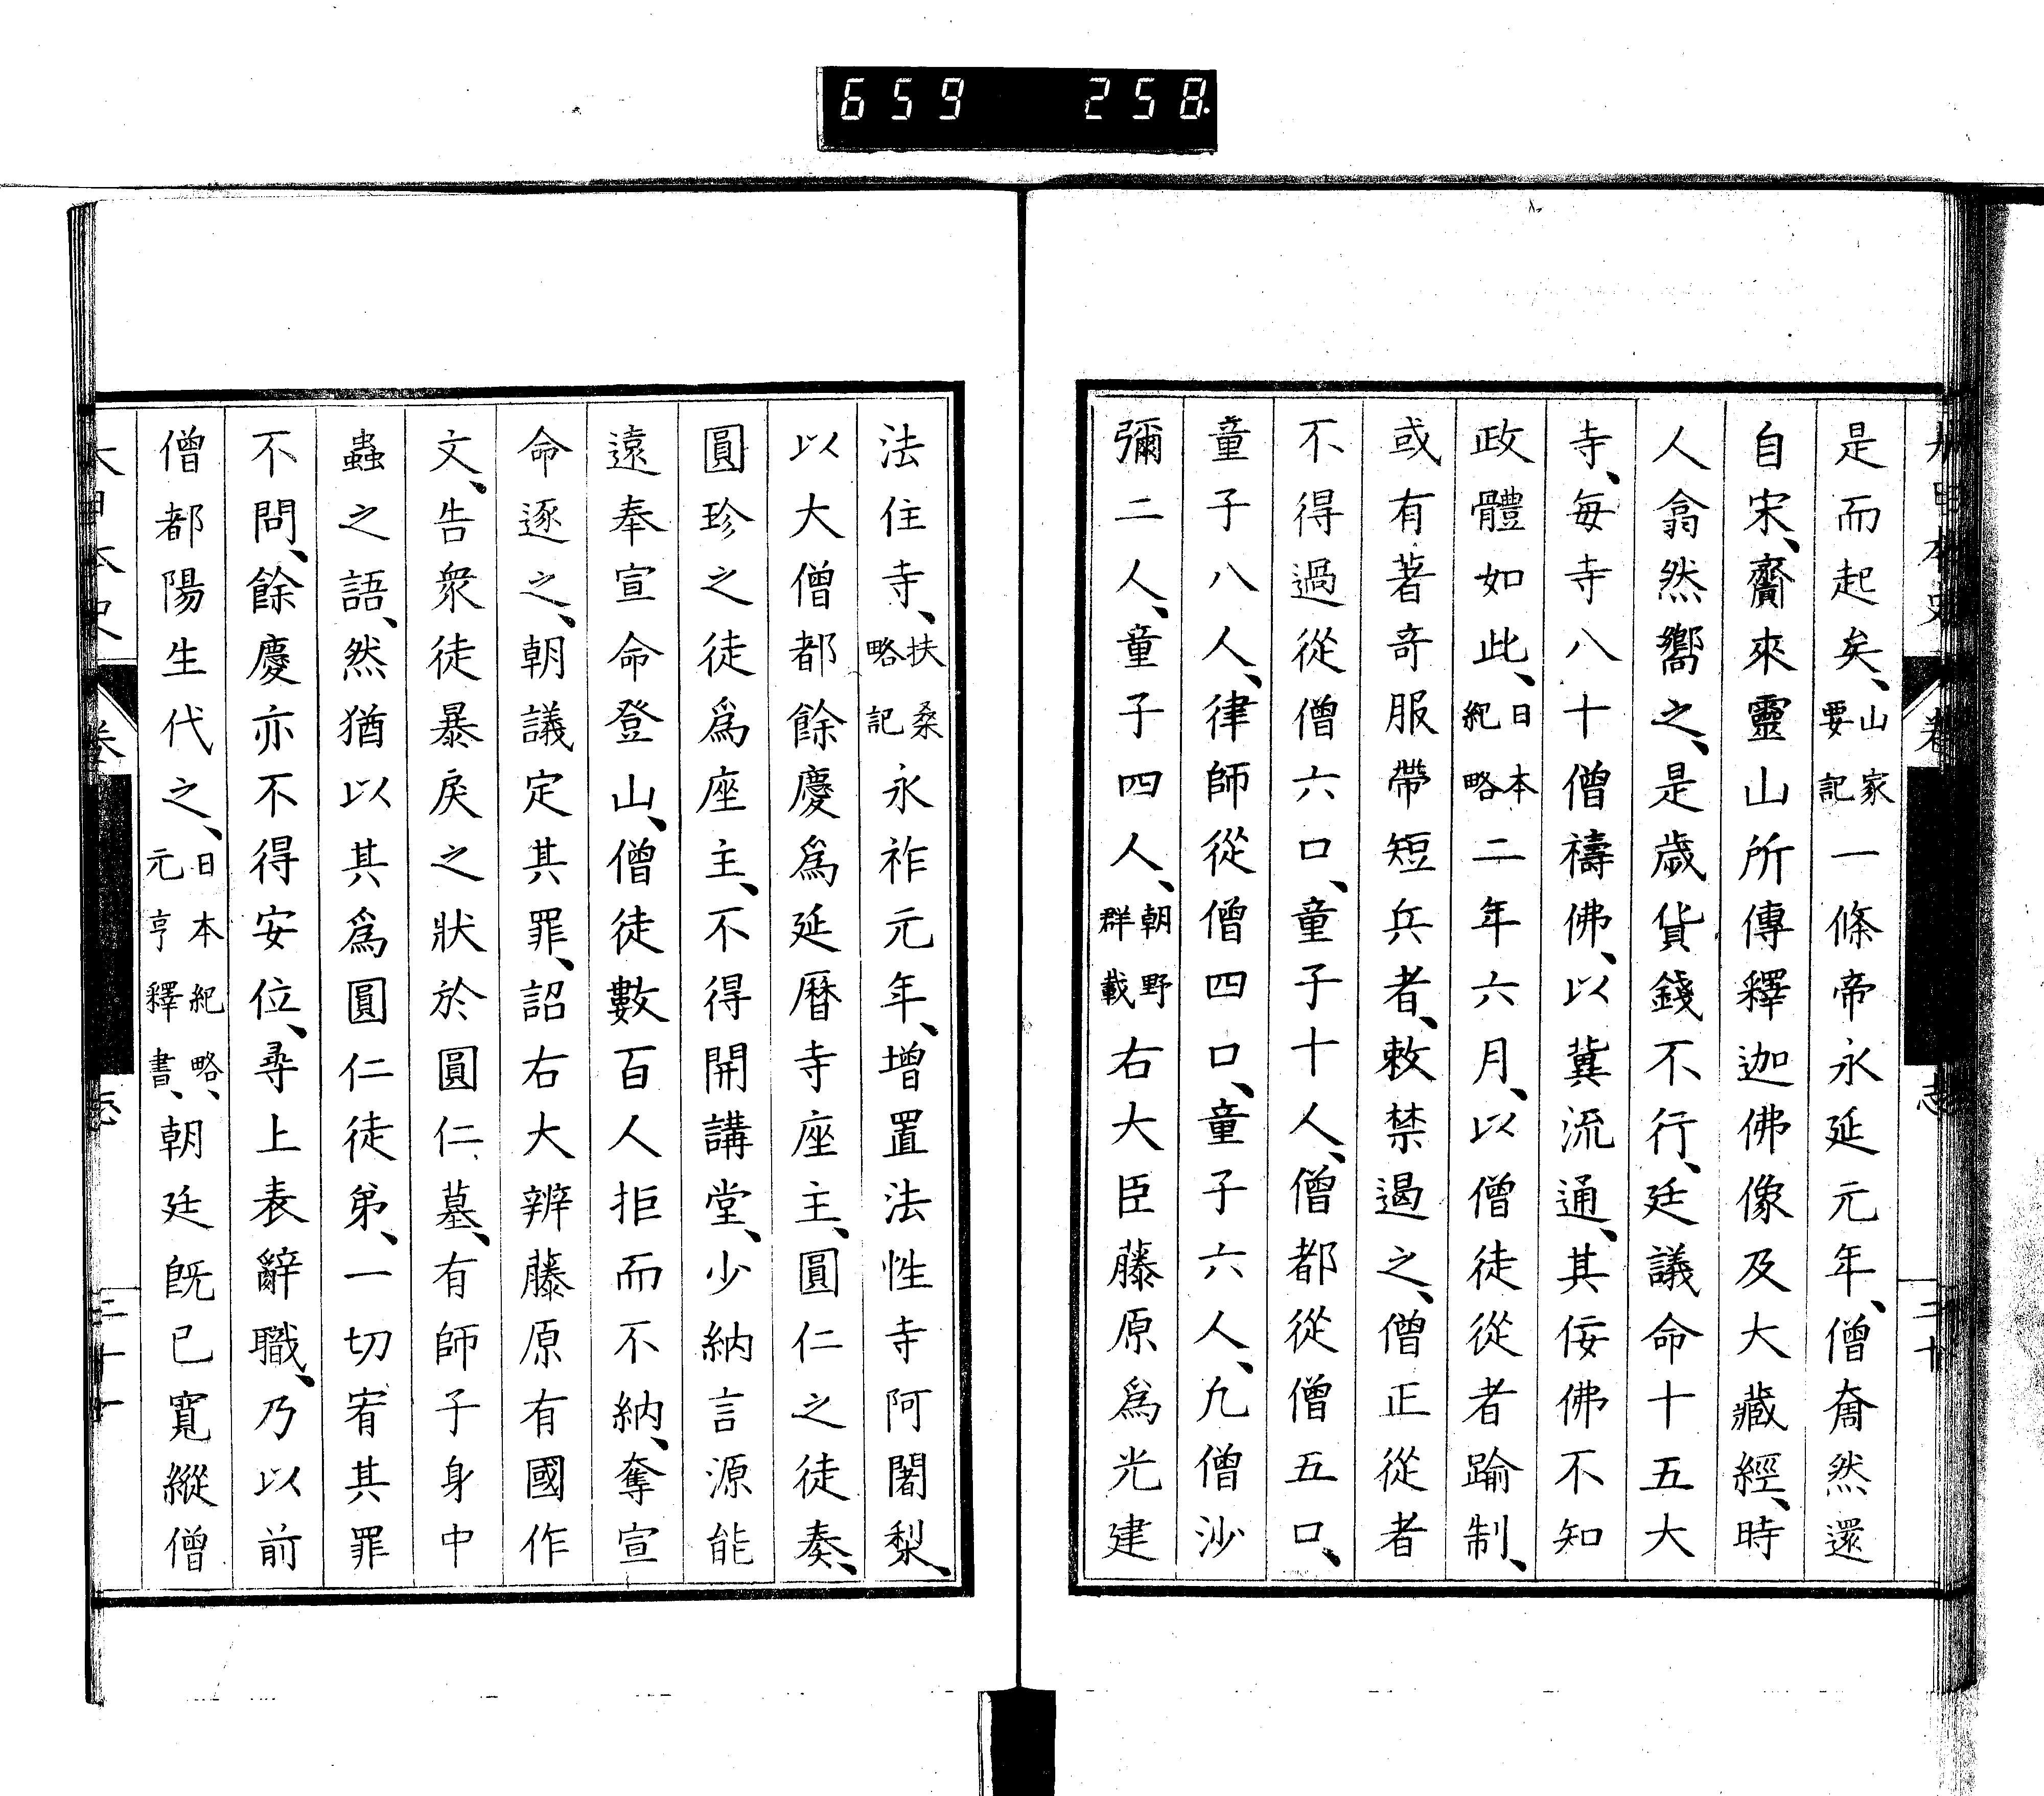 659 258
是而起矣、山家要記一條帝永延元年、僧奝然還
自宋、齎來靈山所傳釋迦佛像及大藏經、時
人翕然嚮之、是歲貨錢不行、廷議命十五大
寺、每寺八十僧禱佛、以冀流通、其佞佛不知
政體如此、日本紀略二年六月、以僧徒從者踰制、
或有著奇服帶短兵者、敕禁遏之、僧正從者
不得過從僧六口、童子十人、僧都從僧五口、
童子八人、律師從僧四口、童子六人、九僧沙
彌二人、童子四人、朝野群載右大臣藤原爲光建
法住寺、扶桑略記永祚元年、增置法性寺阿闍梨、
以大僧都餘慶爲延曆寺座主、圓仁之徒奏、
圓珍之徒爲座主、不得開講堂、少納言源能
遠奉宣命登山、僧徒數百人拒而不納、奪宣
命逐之、朝議定其罪、詔右大辨藤原有國作
文、告衆徒暴戾之狀於圓仁墓、有師子身中
蟲之語、然猶以其爲圓仁徒弟、一切宥其罪
不問、餘慶亦不得安位、尋上表辭職、乃以前
僧都陽生代之、日本紀略、元亨釋書、朝廷旣已寬縱僧
大日本史 卷 志 三十一